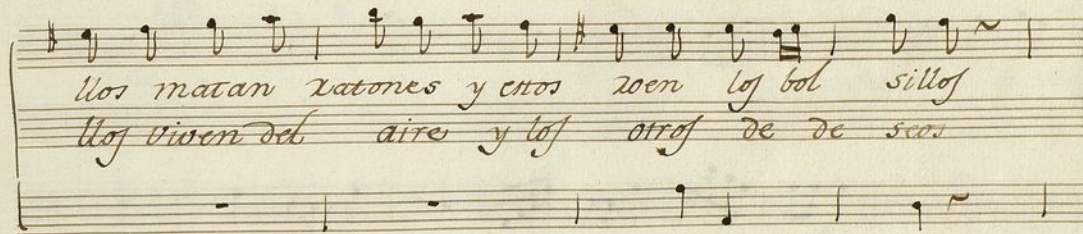 llos matan ratones y estos roen los bol sillos
llos viven del aire y los otros de de seos